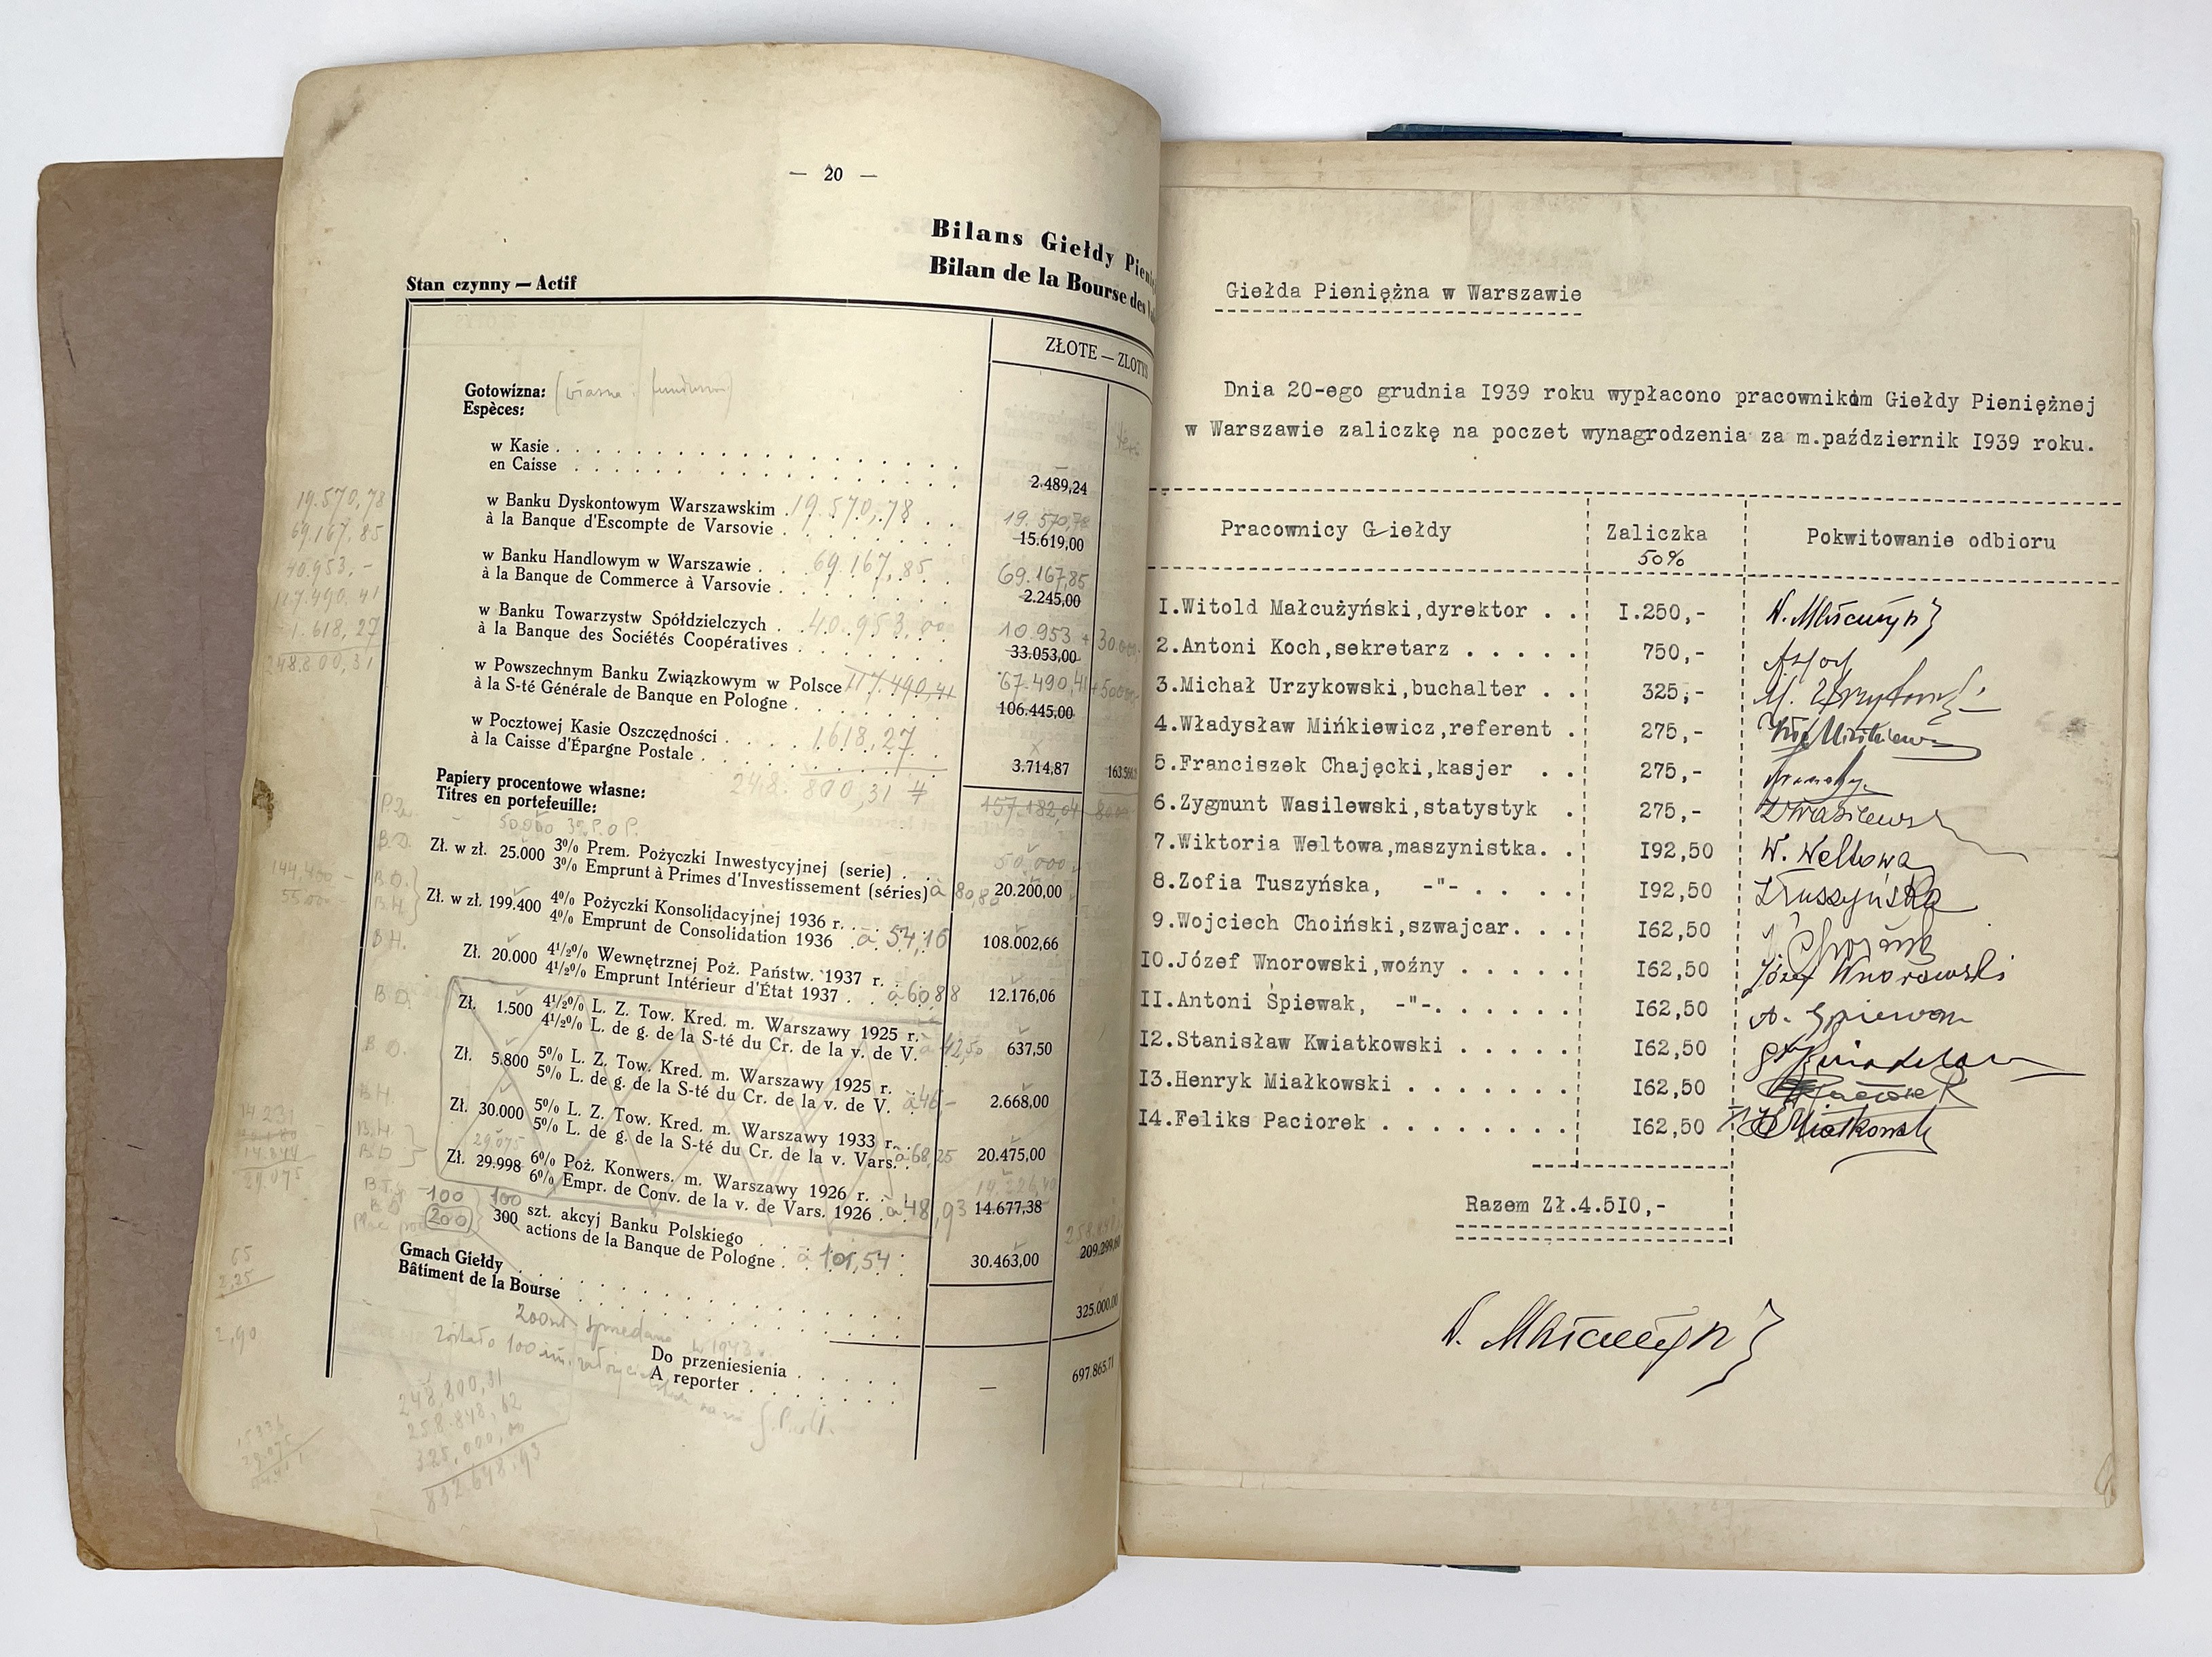 — 20 —
Bilans Giełdy
Bilan de la Bourse des
Stan czynny — Actif
ZŁOTE — ZLOTYS
Gotowizna:
Espèces:
w Kasie . . . . . . . . . . . . . . . . . .
en Caisse . . . . . . . . . . . . . . . . .
2.489,24
w Banku Dyskontowym Warszawskim . 19.570,78 . .
19.570,78
à la Banque d'Escompte de Varsovie . . . . . . . .
15.619,00
w Banku Handlowym w Warszawie . . 69.167,85 .
69.167,85
à la Banque de Commerce à Varsovie . . . . . . . .
2.245,00
w Banku Towarzystw Spółdzielczych . 40.953,00
10.953 +
à la Banque des Sociétés Coopératives . . . . . . .
33.053,00
w Powszechnym Banku Związkowym w Polsce 117.490,41
67.490,41
à la S-té Générale de Banque en Pologne . . . . . .
106.445,00
w Pocztowej Kasie Oszczędności . . . . 1618,27
à la Caisse d'Épargne Postale . . . . . . . . . .
3.714,87
248.800,31
157.182,04
Papiery procentowe własne:
Titres en portefeuille:
50.000 3% P. O P.
50.000
Zł. w zł. 25.000 3% Prem. Pożyczki Inwestycyjnej (serie) . .
3% Emprunt à Primes d'Investissement (séries) à 80,8
20.200,00
Zł. w zł. 199.400 4% Pożyczki Konsolidacyjnej 1936 r. . . .
4% Emprunt de Consolidation 1936 . à 54,16
108.002,66
Zł. 20.000 4½% Wewnętrznej Poż. Państw. 1937 r. .
4½% Emprunt Intérieur d'État 1937 . . à 60,88
12.176,06
Zł. 1.500 4½% L. Z. Tow. Kred. m. Warszawy 1925 r. .
4½% L. de g. de la S-té du Cr. de la v. de V. à 42,50
637,50
Zł. 5.800 5% L. Z. Tow. Kred. m. Warszawy 1925 r.
5% L. de g. de la S-té du Cr. de la v. de V. à 46 -
2.668,00
Zł. 30.000 5% L. Z. Tow. Kred. m. Warszawy 1933 r. .
5% L. de g. de la S-té du Cr. de la v. Vars. . à 68,25
20.475,00
29.075
Zł. 29.998 6% Poż. Konwers. m. Warszawy 1926 r. .
6% Empr. de Conv. de la v. de Vars. 1926 . à 48,93
14.677,38
100 100
200 300 szt. akcyj Banku Polskiego . . . . .
actions de la Banque de Pologne . à 101,54 .
30.463,00
Gmach Giełdy . . . . . . . . . . . . . .
Bâtiment de la Bourse . . . . . . . . . . .
325.000,00
sprzedano w 1943 r.
Do przeniesienia . . . . .
A reporter . . . . . . .
—
697.865,71
248,800,31
258.848,62
325,000,00
832.648,93
19.570,78
69.167,85
40.953,-
117.490,41
1.618,27
248.800,31
Giełda Pieniężna w Warszawie
Dnia 20-ego grudnia I939 roku wypłacono pracownikom Giełdy Pieniężnej
w Warszawie zaliczkę na poczet wynagrodzenia za m.październik I939 roku.
Pracownicy Giełdy Zaliczka Pokwitowanie odbioru
50%
I.Witold Małcużyński,dyrektor . . I.250,- W. Małcużyń
2.Antoni Koch,sekretarz . . . . . 750,- AKoch
3.Michał Urzykowski,buchalter . . 325,- M. Urzykowski
4.Władysław Mińkiewicz,referent . 275,- Wł Mińkiewicz
5.Franciszek Chajęcki,kasjer . . 275,-
6.Zygmunt Wasilewski,statystyk . 275,- ZWasilewski
7.Wiktoria Weltowa,maszynistka. . I92,50 W. Weltowa
8.Zofia Tuszyńska, -"- . . . . I92,50 ZTuszyńska
9.Wojciech Choiński,szwajcar. . . I62,50 Choiński
I0.Józef Wnorowski,woźny . . . . . I62,50 Józef Wnorowski
II.Antoni Śpiewak, -"-. . . . . . I62,50 A. Śpiewak
I2.Stanisław Kwiatkowski . . . . . I62,50 St Kwiatkowski
I3.Henryk Miałkowski . . . . . . . I62,50 Paciorek
I4.Feliks Paciorek . . . . . . . . I62,50 H Miałkowski
Razem Zł.4.5I0,-
W. Małcużyń